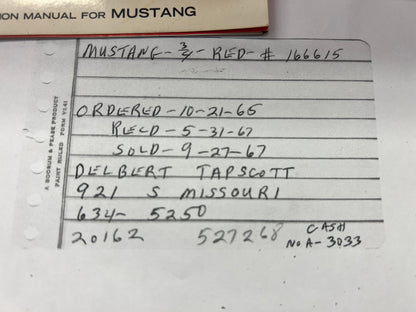 ION MANUAL FOR MUSTANG
MUSTANG - 3/4 - RED - # 166615
ORDERED - 10-21-65
RECD - 5-31-67
SOLD - 9-27-67
DELBERT TAPSCOTT
921 S MISSOURI
634- 5250
20162 527268 CASH
No A- 3033
A BOORUM & PEASE PRODUCT
FAINT RULED FORM